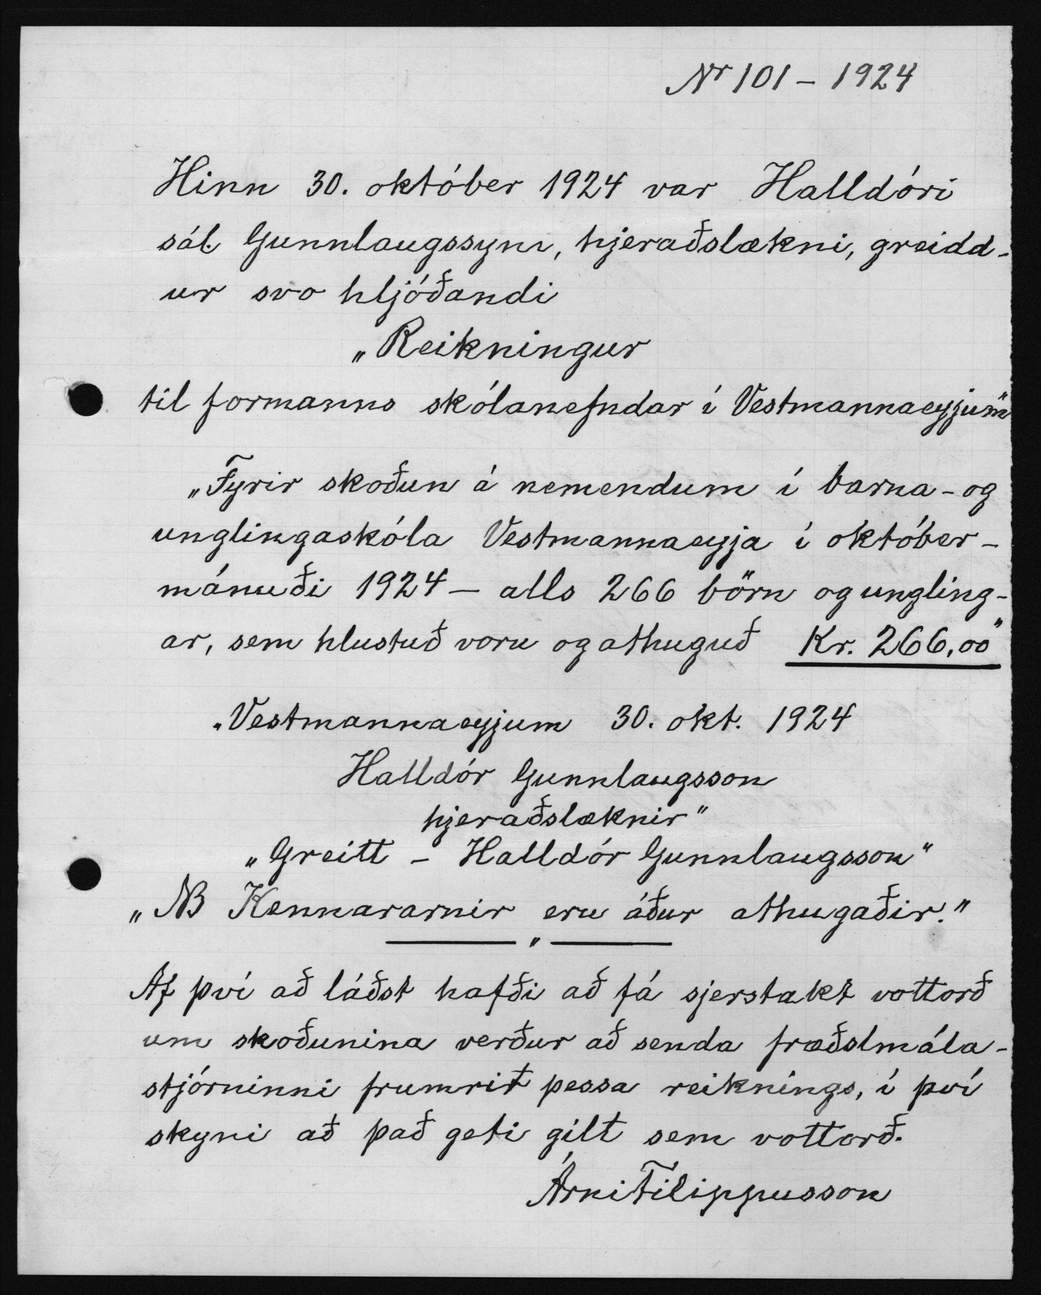 Nr 101 – 1924
Hinn 30. október 1924 var Halldóri
sál. Gunnlaugssyni, hjeraðslækni, greidd-
ur svo hljóðandi
„Reikningur
til formanns skólanefndar í Vestmannaeyjum"
„Fyrir skoðun á nemendum í barna- og
unglingaskóla Vestmannaeyja í október-
mánuði 1924 – alls 266 börn og ungling-
ar, sem hlustuð voru og athuguð Kr. 266,00"
„Vestmannaeyjum 30. okt. 1924
Halldór Gunnlaugsson
hjeraðslæknir"
„Greitt – Halldór Gunnlaugsson"
„NB Kennararnir eru áður athugaðir."
Af því að láðst hafði að fá sjerstakt vottorð
um skoðunina verður að senda fræðslmála-
stjórninni frumrit þessa reiknings, í því
skyni að það geti gilt sem vottorð.
Árni Filippusson